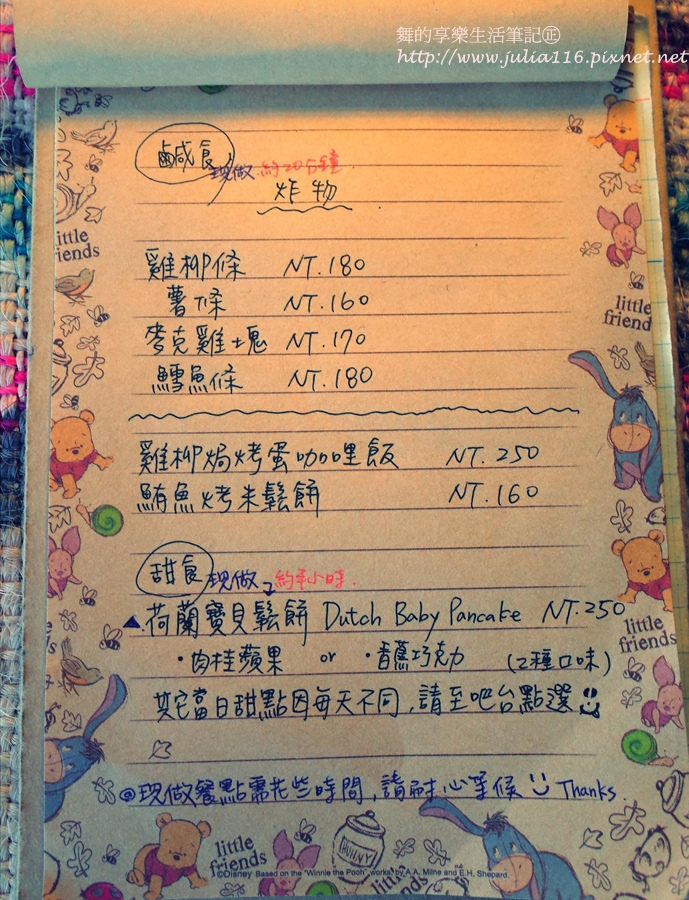 舞的享樂生活筆記㊣
http://www.julia116.pixnet.net
鹹食 現做 約20分鐘.
炸物
雞柳條 NT.180
薯條 NT.160
麥克雞塊 NT.170
鱈魚條 NT.180
雞柳焗烤蛋咖哩飯 NT.250
鮪魚烤米鬆餅 NT.160
甜食 現做 約半小時.
▲荷蘭寶貝鬆餅 Dutch Baby Pancake NT.250
·肉桂蘋果 or ·香蕉巧克力 (2種口味)
其它當日甜點因每天不同,請至吧台點選
◎現做餐點需花些時間,請耐心等候 Thanks.
little
friends
little
friends
little
friends
little
friends
HUNNY
little
friends
©Disney Based on the "Winnie the Pooh" works, by A.A. Milne and E.H. Shepard.